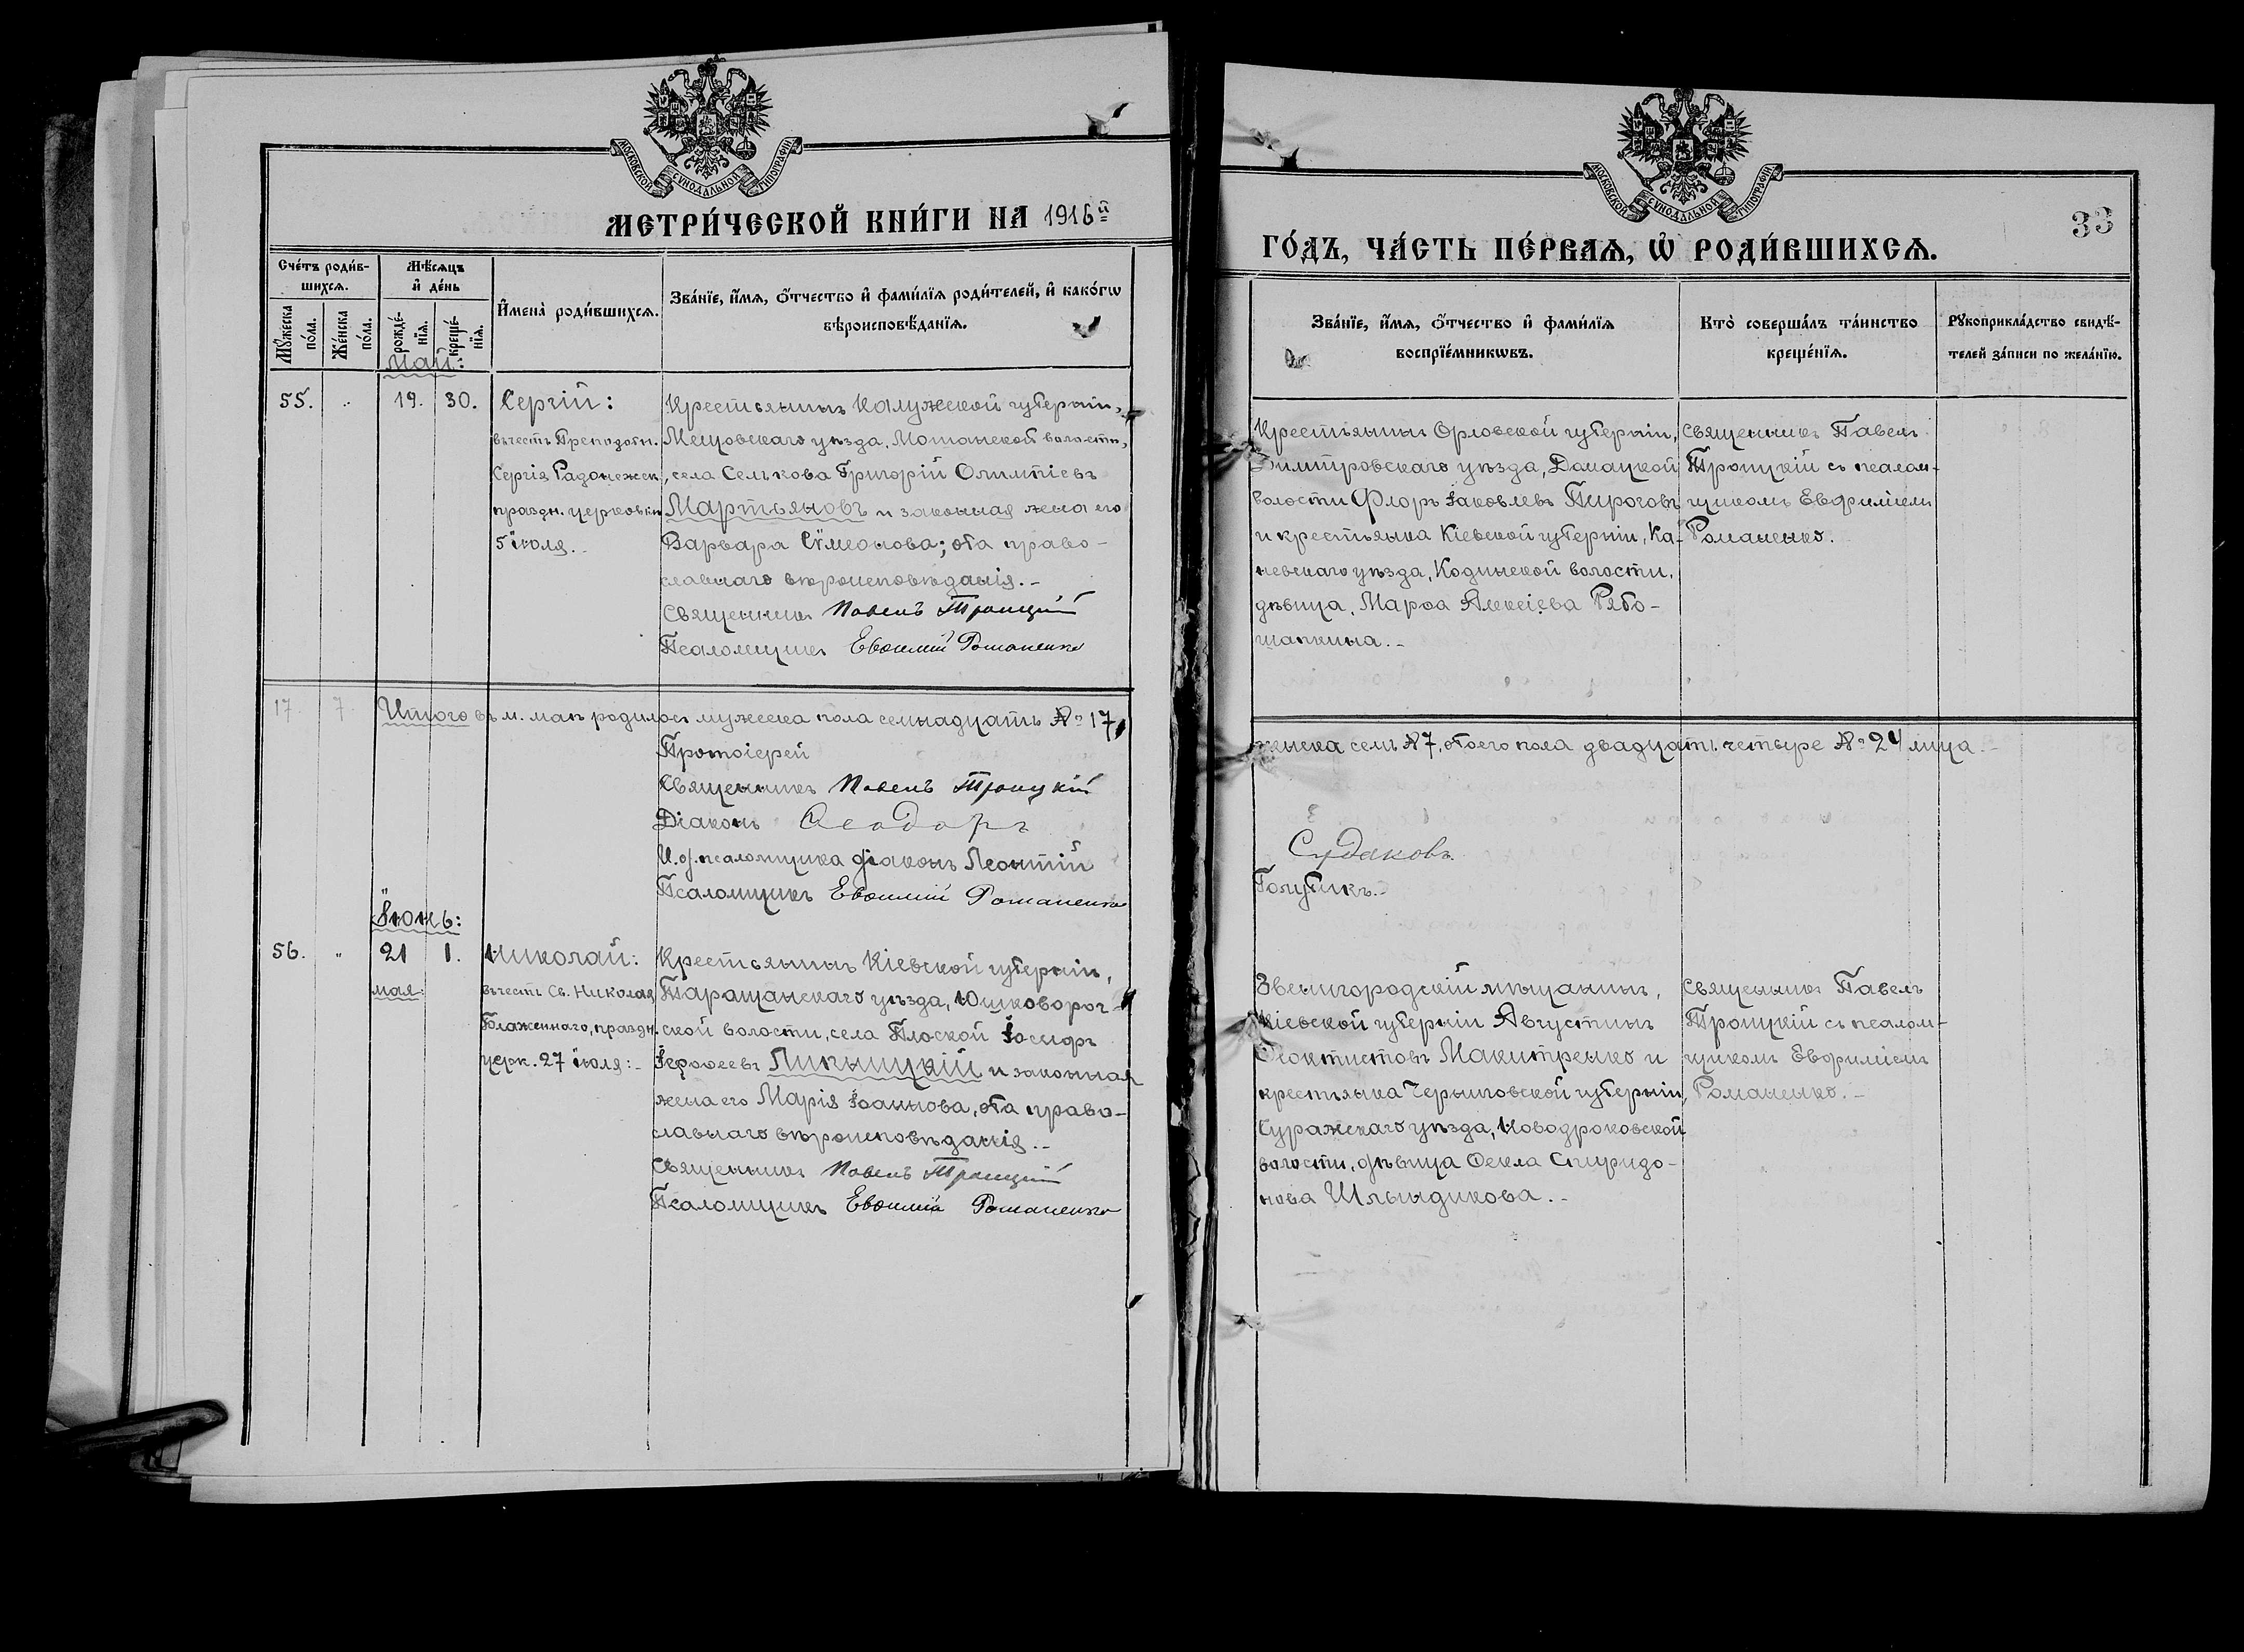 МОСКОВСКОЙ СУНОДАЛЬНОЙ ТИПОГРАФІИ
МЕТРИ́ЧЕСКОЙ КНИ́ГИ НА 1916й
Сче́тъ роди́в-
шихсѧ.
Мꙋ́жеска
по́ла.
Же́нска
по́ла.
Мѣ́сѧцъ
и҆ де́нь
рожде́-
нїѧ.
креще́-
нїѧ.
И҆мена̀ роди́вшихсѧ.
Зва́нїе, и҆́мѧ, ѻ҆́тчество и҆ фами́лїѧ роди́телей, и҆ како́гѡ
вѣроисповѣ́данїѧ.
Май:
55.
"
19.
30.
Сергій:
въ честь Преподобн.
Сергія Радонежск.
праздн. церковью
5 іюля.
Крестьянинъ Калужской губерніи,
Мещовскаго уѣзда, Мошонской волости,
села Селькова Григорій Олимпіевъ
Мартьяновъ и законная жена его
Варвара Сѵмеонова; оба право-
славнаго вѣроисповѣданія.-
Священникъ Павелъ Троицкій
Псаломщикъ Евѳимій Романенко
17.
7.
Итого въ м. маѣ родилось мужеска пола семнадцать №17,
Протоіерей
Священникъ Павелъ Троицкій
Діаконъ Ѳеодоръ
И.д. псаломщика діаконъ Леонтій
Псаломщикъ Евѳимій Романенко
Іюнь:
56.
"
21
мая:
1.
Николай:
въ честь Св. Николая
Блаженнаго, праздн.
церк. 27 іюля:-
Крестьянинъ Кіевской губерніи,
Таращанскаго уѣзда, Юшковорог-
ской волости, села Плоской Іосифъ
Іерофеевъ Липницкій и законная
жена его Марія Іоаннова, оба право-
славнаго вѣроисповѣданія.-
Священникъ Павелъ Троицкій
Псаломщикъ Евѳимій Романенко
МОСКОВСКОЙ СУНОДАЛЬНОЙ ТИПОГРАФІИ
33
ГО́ДЪ, ЧА́СТЬ ПЕ́РВАѦ, Ѡ҆ РОДИ́ВШИХСѦ.
Зва́нїе, и҆́мѧ, ѻ҆́тчество и҆ фами́лїѧ
воспрїе́мникѡвъ.
Кто̀ соверша́лъ та́инство
креще́нїѧ.
Рꙋкоприкла́дство свидѣ́-
телей за́писи по жела́нїю.
Крестьянинъ Орловской губерніи,
Димитровскаго уѣзда, Домацкой
волости Флоръ Іаковлевъ Пироговъ
и крестьянка Кіевской губерніи, Ка-
невскаго уѣзда, Кодинской волости,
дѣвица, Марѳа Алексіева Рябо-
шапкина.-
Священникъ Павелъ
Троицкій съ псалом-
щикомъ Евфиміемъ
Романенко.
женска семь №7, обоего пола двадцать четыре №24 лица.-
Судаковъ.
Голубикъ.
Звенигородскій мѣщанинъ,
Кіевской губерніи Августинъ
Ѳеоктистовъ Макитренко и
крестьянка Черниговской губерніи,
Суражскаго уѣзда, Новодроковской
волости, дѣвица Ѳекла Спиридо-
нова Шлындикова.-
Священникъ Павелъ
Троицкій съ псалом-
щикомъ Евфиміемъ
Романенко.-